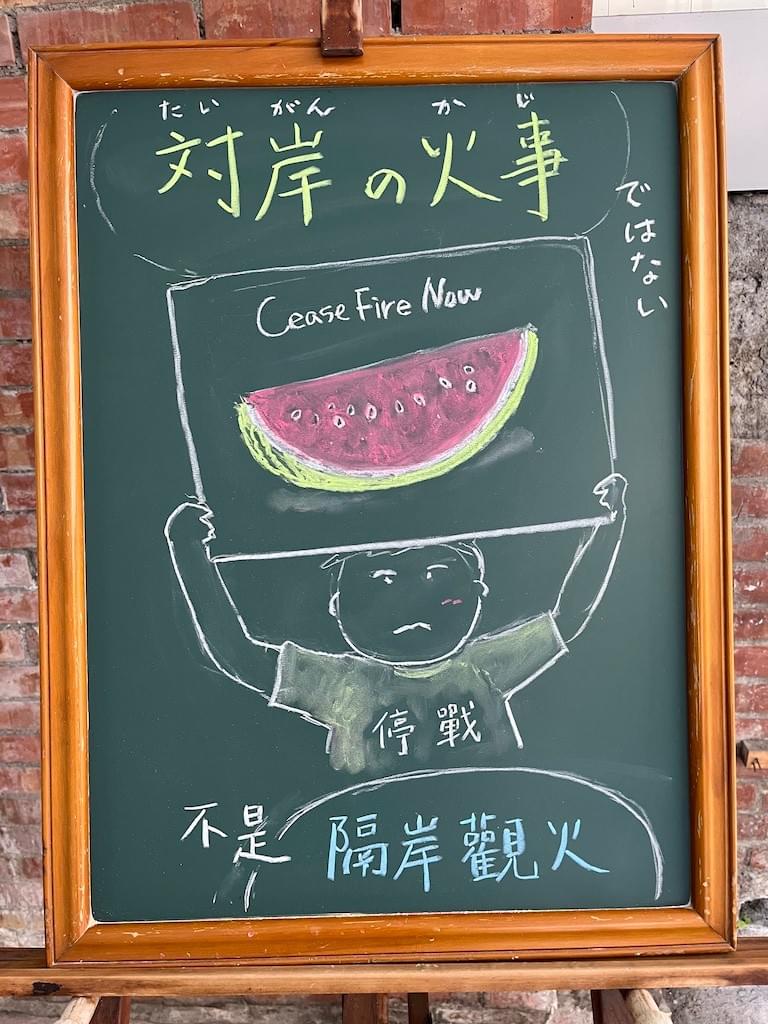 たい がん か じ
対岸の火事
ではない
Cease Fire Now
停戰
不是
隔岸觀火